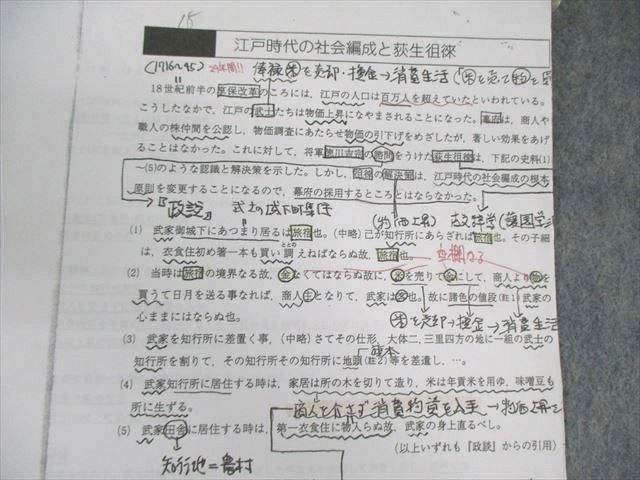 15
江戸時代の社会編成と荻生徂徠
(1716〜45) 29年間!! 俸禄米を売却・換金→消費生活
18世紀前半の享保改革のころには、江戸の人口は百万人を超えていたといわれている。
こうしたなかで、江戸の武士たちは物価上昇になやまされることになった。幕府は、商人や
職人の株仲間を公認し、物価調査にあたらせ物価の引下げをめざしたが、著しい効果をあげ
ることはなかった。これに対して、将軍徳川吉宗の諮問をうけた荻生徂徠は、下記の史料(1)
〜(5)のような認識と解決策を示した。しかし、徂徠の解決策は、江戸時代の社会編成の根本
原則を変更することになるので、幕府の採用するところとはならなかった。
『政談』 武士の城下町集住 (物価上昇) 古文辞学
(1) 武家御城下にあつまり居るは旅宿也。(中略)己が知行所にあらざれば旅宿也。その子細
は、衣食住初め箸一本も買い調えねばならぬ故、旅宿也。
ととの
(2) 当時は旅宿の境界なる故、金なくてはならぬ故に、米を売りて金にして、商人より物を
買うて日月を送る事なれば、商人主となりて、武家は客也。故に諸色の値段(註1)武家の
心ままにはならぬ也。
米を売却→換金→消費生活
(3) 武家を知行所に差置く事、(中略)さてその仕形、大体二、三里四方の地に一組の武士の
知行所を割りて、その知行所その知行所に地頭(註2)等を差遣し、…。
旗本
(4) 武家知行所に居住する時は、家居は所の木を切りて造り、米は年貢米を用ゆ、味噌豆も
所に生ずる。
商人を介さず消費物資を入手→物価上昇
(5) 武家田舎に居住する時は、第一衣食住に物入らぬ故、武家の身上直るべし。
(以上いずれも『政談』からの引用)
知行地=農村